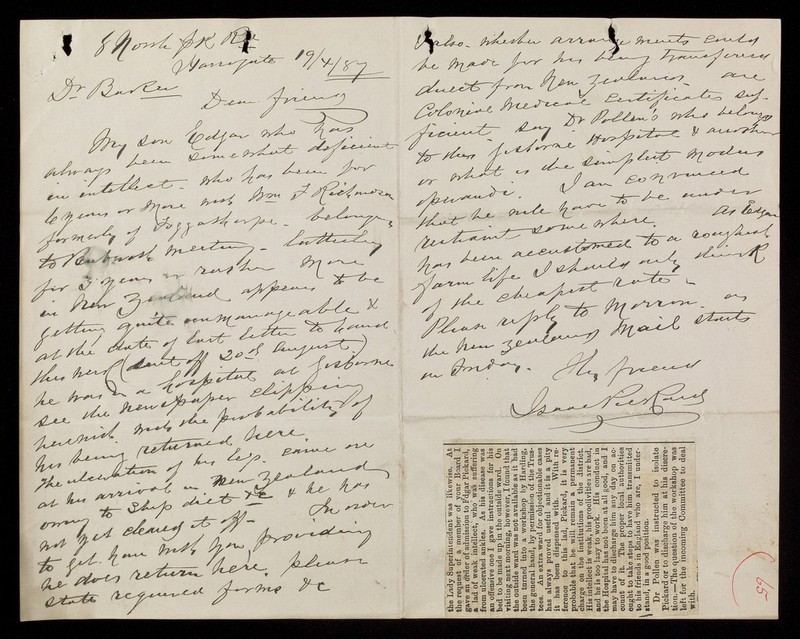 8 North Pk Rd
Harrogate 19/4/87
Dr Barker
Dear friend
My son Edgar who has
always been somewhat deficient
in intellect - who has been for
6 years or more with Wm F Richardson
formerly of Foggathorpe - belongs
to meeting - latterly
for 3 years or rather more
in New Zealand appears to be
getting quite unmanageable &
at the date of last letter to hand
this week (sent off 20th August)
he was in a hospital at Gisborne
see the newspaper clipping
herewith with the probability of
his being returned here.
The ulceration of his legs came on
at his arrival in New Zealand
owing to Ship diet &c & he has
not yet cleared it off - In order
to get him with you, providing
he does return here, please
state required forms &c
& also whether arrangements could
be made for his being transferred
direct from New Zealand - are
Colonial Medical Certificates suf-
ficient - say Dr Pollen's who belongs
to this Gisborne Hospital & another
or what is the simplest modus
operandi. I am convinced
that he will have to be under
restraint somewhere. As Edgar
has been accustomed to a roughish
farm life I should only think
of the cheapest rate -
Please reply to morrow - as
the New Zealand Mail starts
on Friday - Thy friend
Isaac Pickard
the Lady Superintendent was likewise. At
the request of a member of your Board I
gave an order of admission to Edgar Pickard,
a lad of weak intellect, who was suffering
from ulcerated ankles. As his disease was
an offensive one, I gave instructions for his
bed to be made up in the outside ward. On
visiting next morning, however, I found that
the outside ward was not available as it had
been turned into a workshop for carding,
the general hand, by permission of the Trus-
tees. An extra ward for objectionable cases
has always proved useful and it is a pity
it has been dispensed with. With re-
ference to this lad, Pickard, it is very
probable that he will remain a permanent
charge on the institutions of the district.
His intellect is weak, his proclivities are bad,
and he is too lazy to work. His conduct in
the Hospital has not been at all good, and I
may have to discharge him any day on ac-
count of it. The proper local authorities
ought to take steps to have him transmitted
to his friends in England who are, I under-
stand, in a good position.
Dr Pollen was instructed to isolate
Pickard or to discharge him at his discre-
tion.—The question of the workshop was
left for the incoming Committee to deal
with.
65